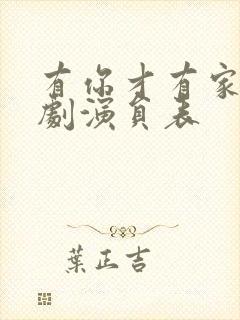 有你才有家
劇演員表
葉正吉